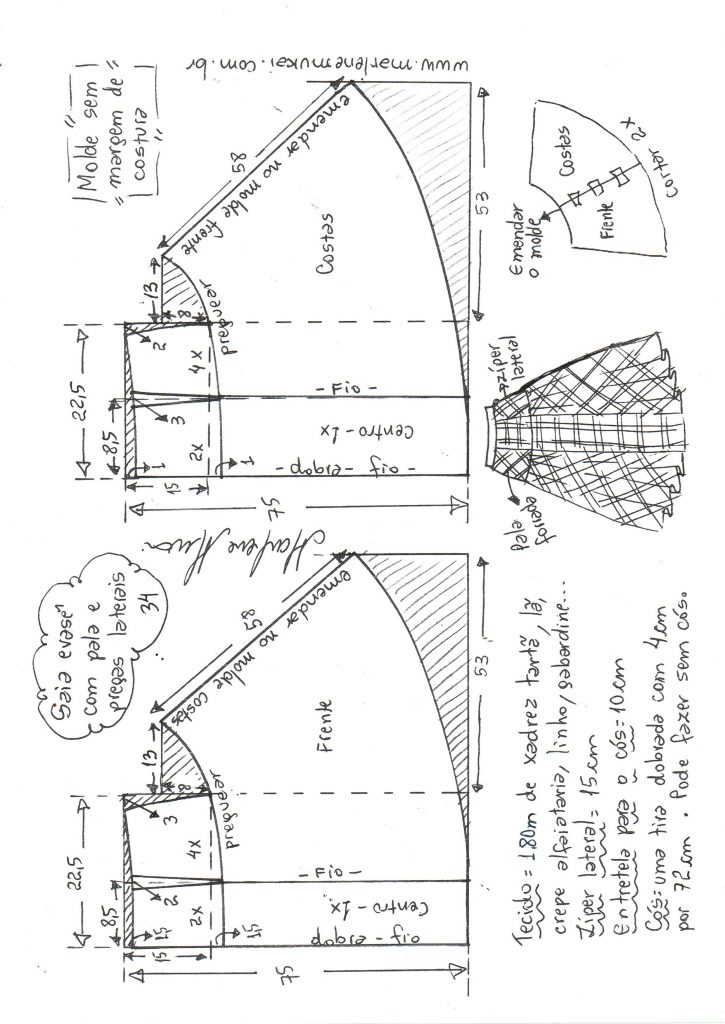 Saia evasê
com pala e
pregas laterais
34
"Molde sem
margem de
costura"
www.marlenemukai.com.br
22,5
8,5
15
1,5
1,5
2
3
2x
4x
8
13
preguear
75
dobra - fio
Centro - 1x
- Fio -
Frente
emendar no molde costas
58
53
22,5
8,5
15
1
1
3
2
2x
4x
8
13
preguear
75
dobra - fio -
Centro - 1x
- Fio -
Costas
emendar no molde frente
58
53
Tecido = 1.80m de xadrez tartã, lã,
crepe alfaiataria, linho, gabardine...
Ziper lateral = 15cm
Entretela para o cós = 10cm
Cós: uma tira dobrada com 4cm
por 72cm. Pode fazer sem cós.
pala
forrada
zíper
lateral
Emendar
o molde
Frente
Costas
Cortar 2x